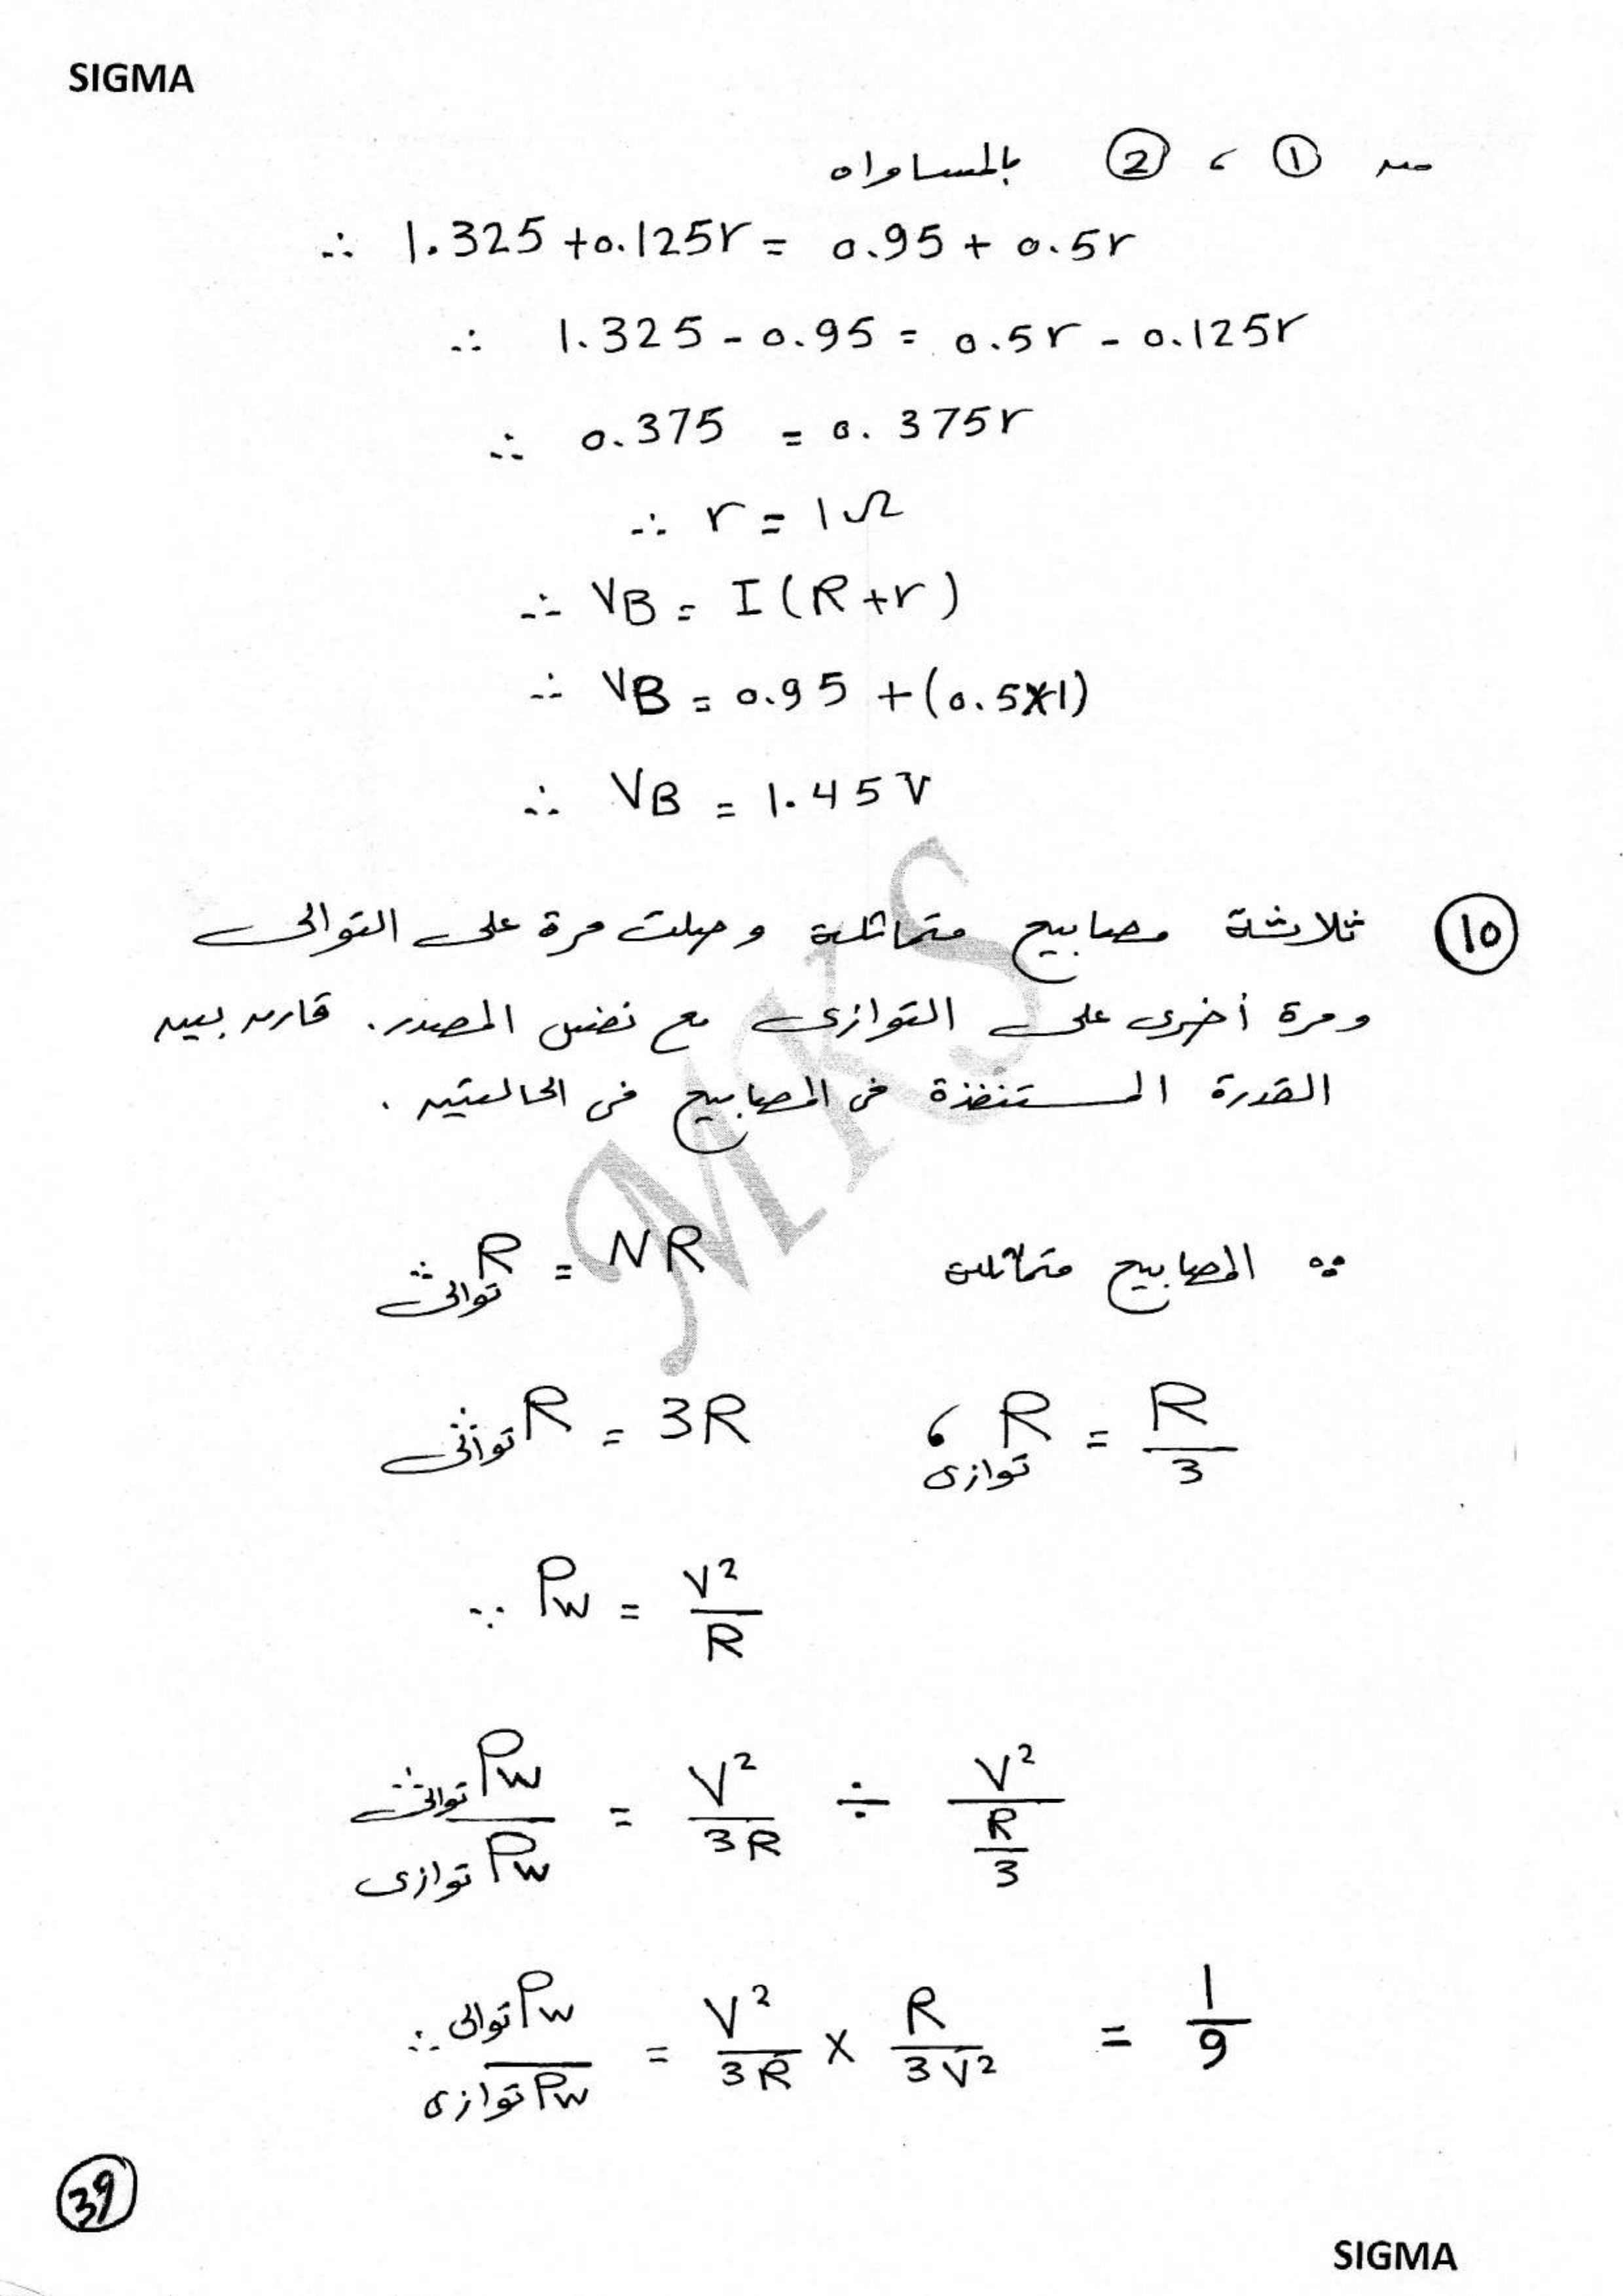 SIGMA
من ① ، ② بالمساواه
∴ 1.325 + 0.125r = 0.95 + 0.5r
∴ 1.325 - 0.95 = 0.5r - 0.125r
∴ 0.375 = 0.375r
∴ r = 1Ω
∴ VB = I(R+r)
∴ VB = 0.95 + (0.5×1)
∴ VB = 1.45V
⑩ ثلاثة مصابيح متماثلة وصلت مرة على التوالى
ومرة أخرى على التوازى مع نفس المصدر. قارن بين
القدرة المستنفذة فى المصابيح فى الحالتين .
∵ المصابيح متماثلة ∴ R توالى = NR
∴ R توالى = 3R ، R توازى = R/3
∵ Pw = V²/R
∴ Pw توالى / Pw توازى = V²/3R ÷ V²/(R/3)
∴ Pw توالى / Pw توازى = V²/3R × R/3V² = 1/9
39
SIGMA
MKS